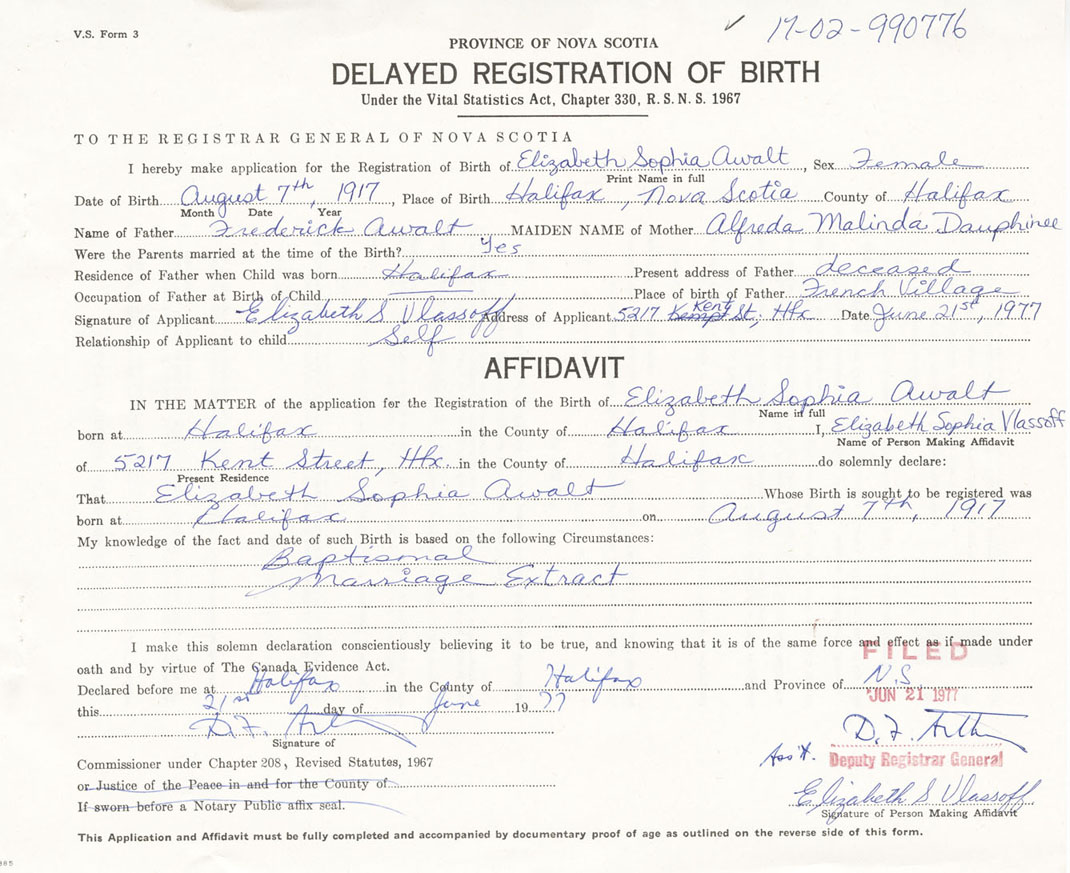 V.S. Form 3
17-02-990776
PROVINCE OF NOVA SCOTIA
DELAYED REGISTRATION OF BIRTH
Under the Vital Statistics Act, Chapter 330, R. S. N. S. 1967
TO THE REGISTRAR GENERAL OF NOVA SCOTIA
I hereby make application for the Registration of Birth of Elizabeth Sophia Awalt, Sex Female
Print Name in full
Date of Birth August 7th, 1917, Place of Birth Halifax, Nova Scotia County of Halifax
Month Date Year
Name of Father Frederick Awalt, MAIDEN NAME of Mother Alfreda Malinda Dauphinee
Were the Parents married at the time of the Birth? Yes
Residence of Father when Child was born Halifax Present address of Father deceased
Occupation of Father at Birth of Child Place of birth of Father French Village
Signature of Applicant Elizabeth S Vlassoff Address of Applicant 5217 Kempt Kent St, Hfx Date June 21st, 1977
Relationship of Applicant to child Self
AFFIDAVIT
IN THE MATTER of the application for the Registration of the Birth of Elizabeth Sophia Awalt
Name in full
born at Halifax in the County of Halifax I, Elizabeth Sophia Vlassoff
Name of Person Making Affidavit
of 5217 Kent Street, Hfx in the County of Halifax do solemnly declare:
Present Residence
That Elizabeth Sophia Awalt Whose Birth is sought to be registered was
born at Halifax on August 7th, 1917
My knowledge of the fact and date of such Birth is based on the following Circumstances:
Baptismal
Marriage Extract
I make this solemn declaration conscientiously believing it to be true, and knowing that it is of the same force and effect as if made under
FILED
oath and by virtue of The Canada Evidence Act.
Declared before me at Halifax in the County of Halifax and Province of N.S.
JUN 21 1977
this 21st day of June 19 77
D.F. Arth
D.F. Arth
Signature of
Ass't. Deputy Registrar General
Commissioner under Chapter 208, Revised Statutes, 1967
or Justice of the Peace in and for the County of
Elizabeth S Vlassoff
If sworn before a Notary Public affix seal.
Signature of Person Making Affidavit
This Application and Affidavit must be fully completed and accompanied by documentary proof of age as outlined on the reverse side of this form.